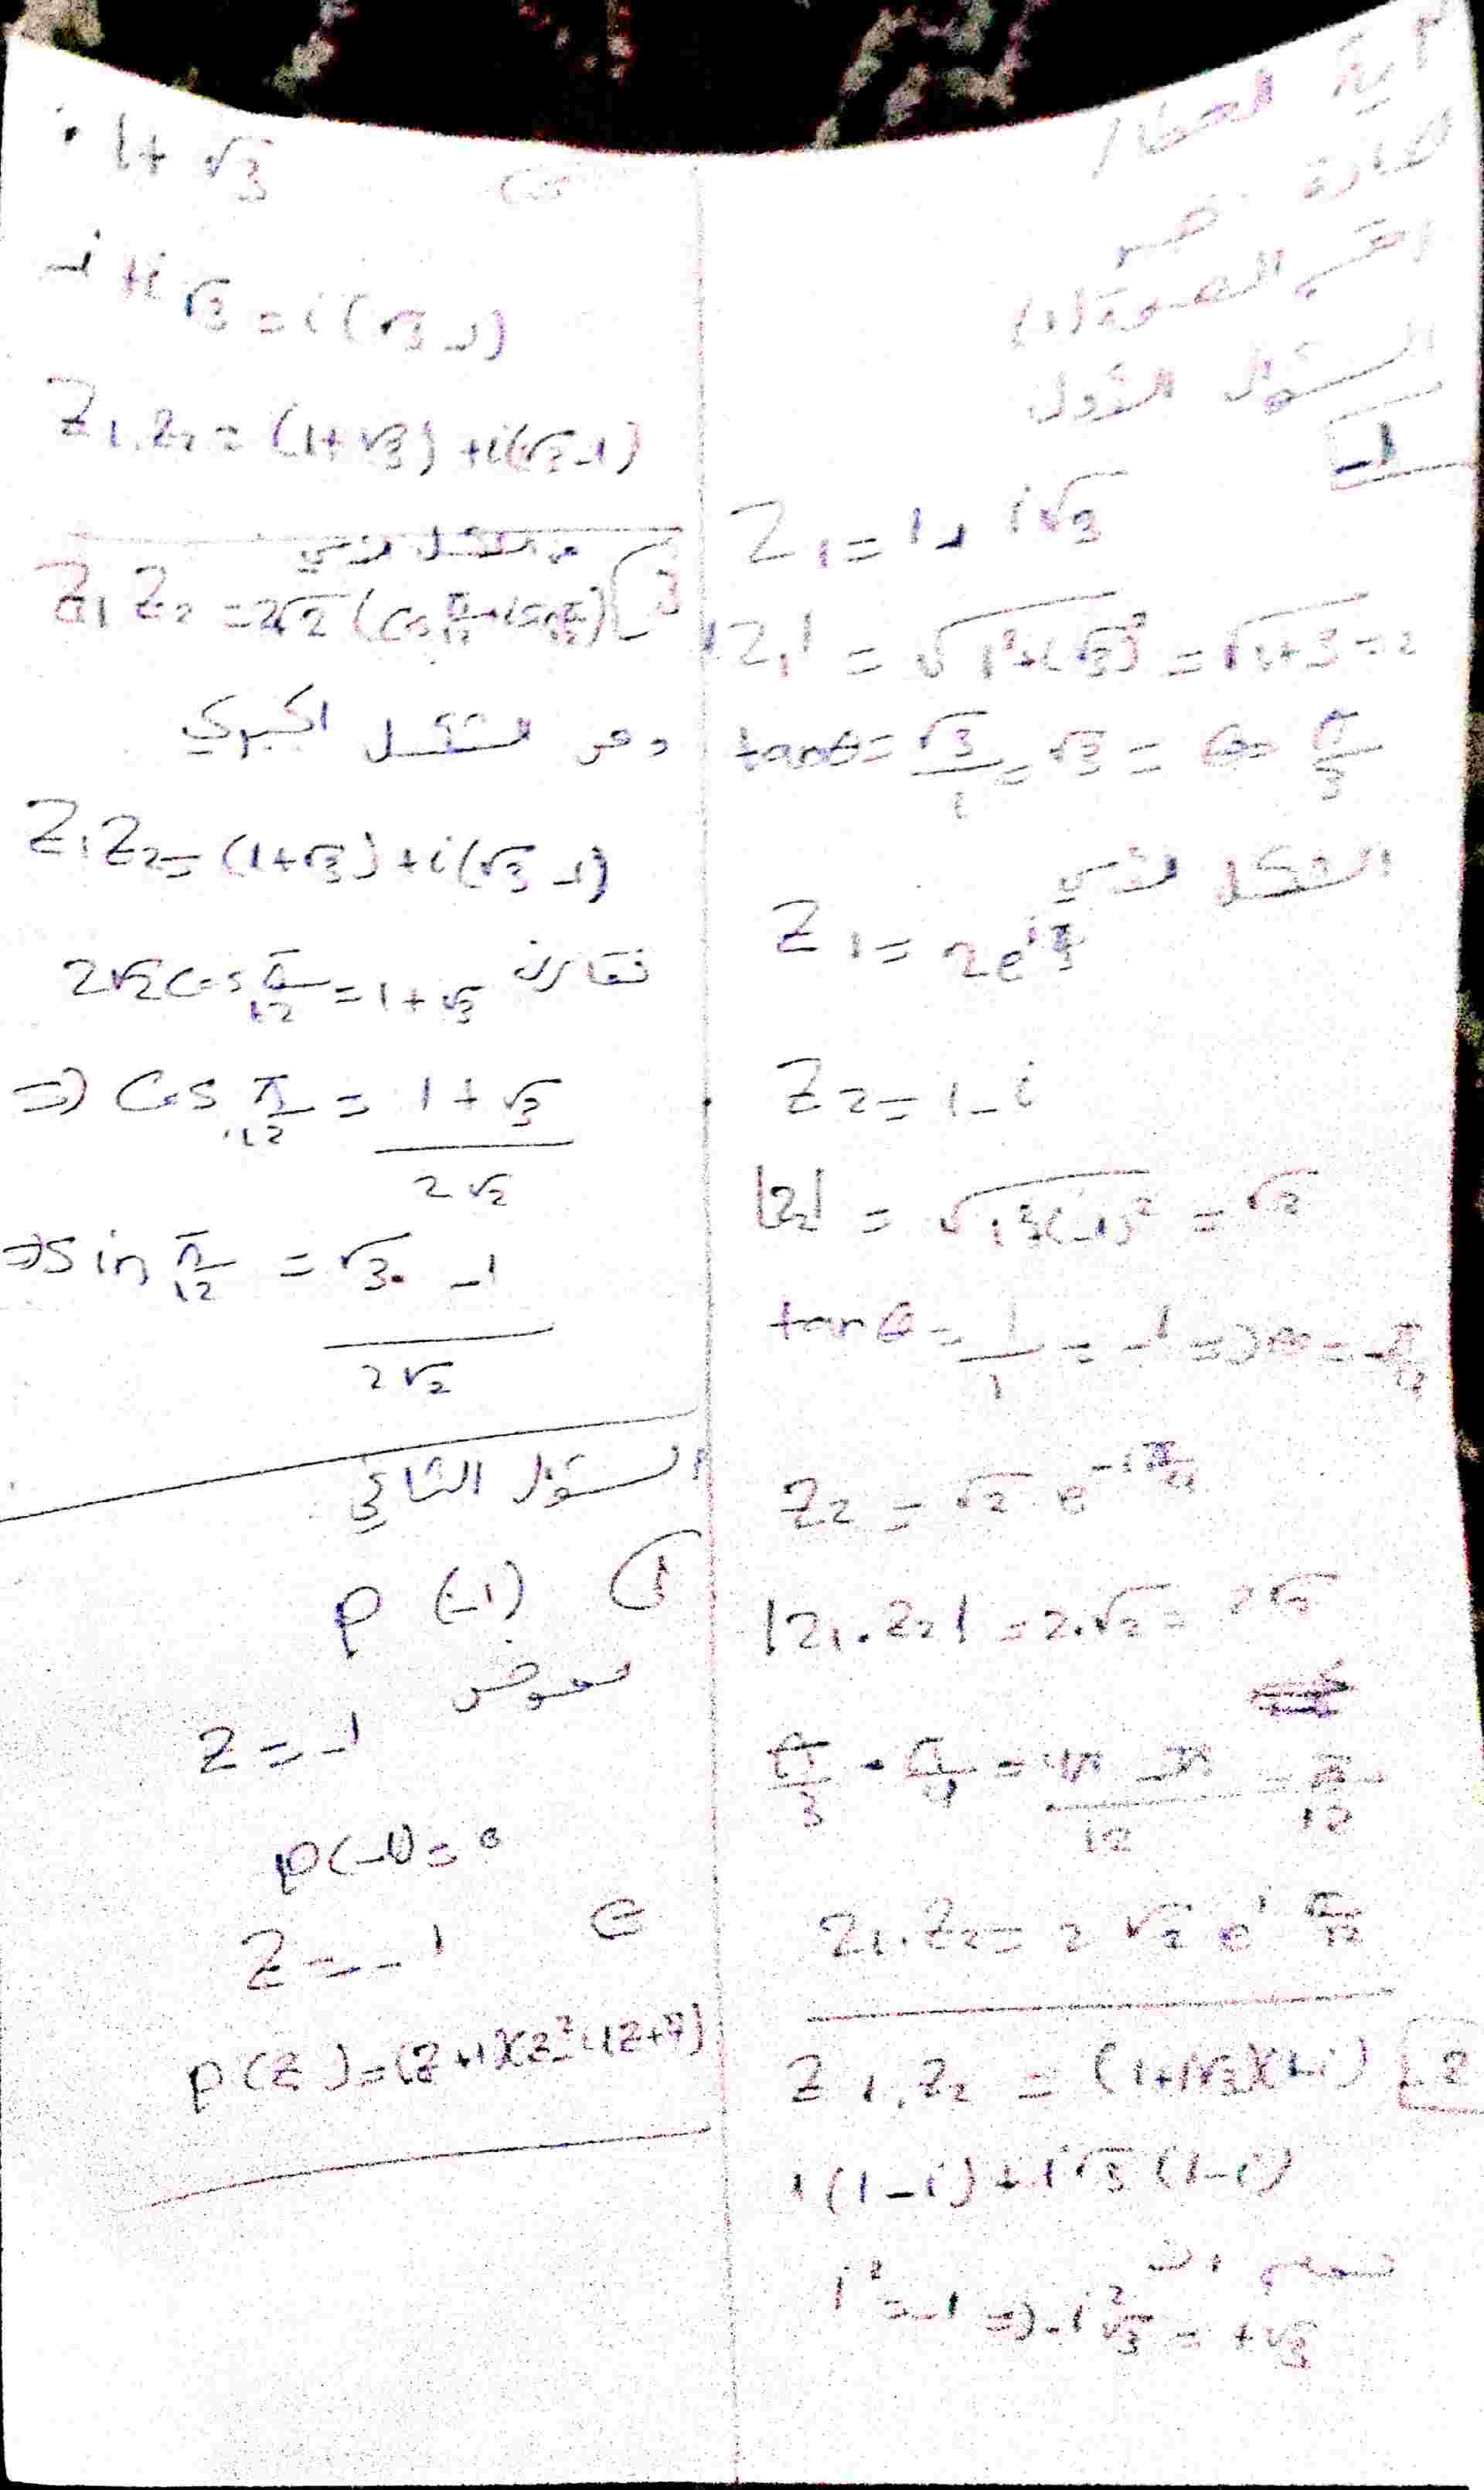 آية العطار
السؤال الأول
-1
Z₁ = 1 + i√3
|Z₁| = √1²+(√3)² = √1+3 = 2
tanθ = √3/1 = √3 = θ = π/3
الشكل الأسي
Z₁ = 2e^{iπ/3}
Z₂ = 1 - i
|Z₂| = √1²+(-1)² = √2
Z₂ = √2 e^{-iπ/4}
|Z₁.Z₂| = 2.√2 = 2√2
π/3 - π/4 = 4π - 3π/12 = π/12
Z₁.Z₂ = 2√2 e^{iπ/12}
2
Z₁.Z₂ = (1+i√3)(1-i)
1(1-i) + i√3(1-i)
i² = -1 => -i²√3 = +√3
1 + √3
-i + i√3 = i(√3 - 1)
Z₁.Z₂ = (1+√3) + i(√3-1)
3 من الشكل الأسي
Z₁Z₂ = 2√2 (cos π/12 + i sin π/12)
ومن الشكل الجبري
Z₁Z₂ = (1+√3) + i(√3 - 1)
نقارن 2√2 cos π/12 = 1 + √3
=> cos π/12 = 1 + √3/2√2
=> sin π/12 = √3 - 1/2√2
السؤال الثاني
1 P(-1)
نعوض
Z = -1
P(-1) = 0
Z = -1